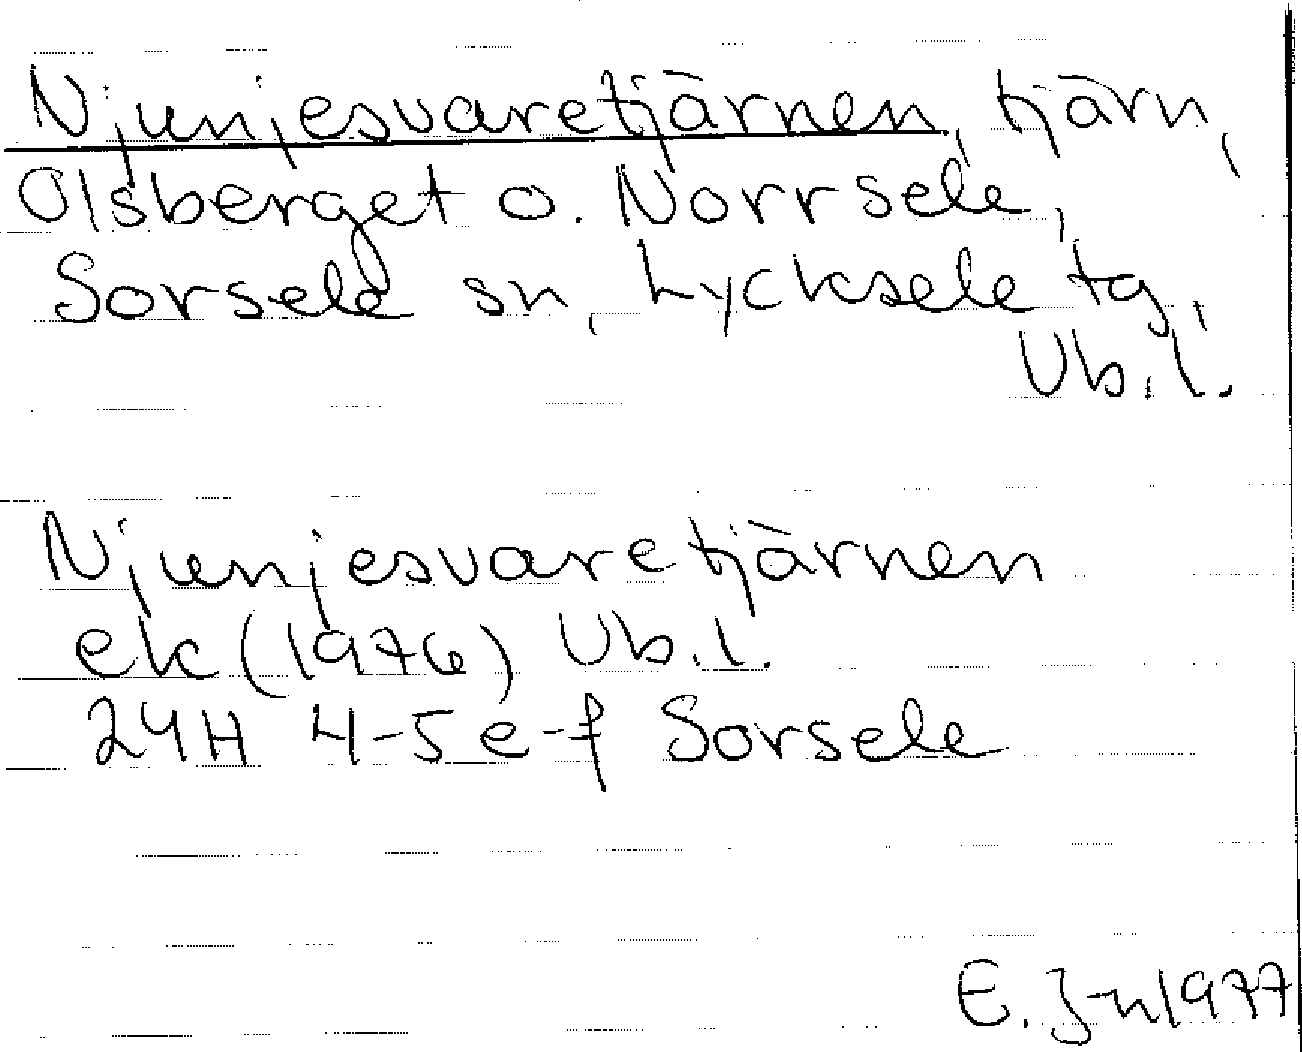 Njunjesvaretjärnen, tjärn,
Olsberget o. Norrsele,
Sorsele sn, Lycksele tg,
Vb.l.
Njunjesvaretjärnen
ek (1976) Vb.l.
24H 4-5 e-f Sorsele
E. J-n 1977